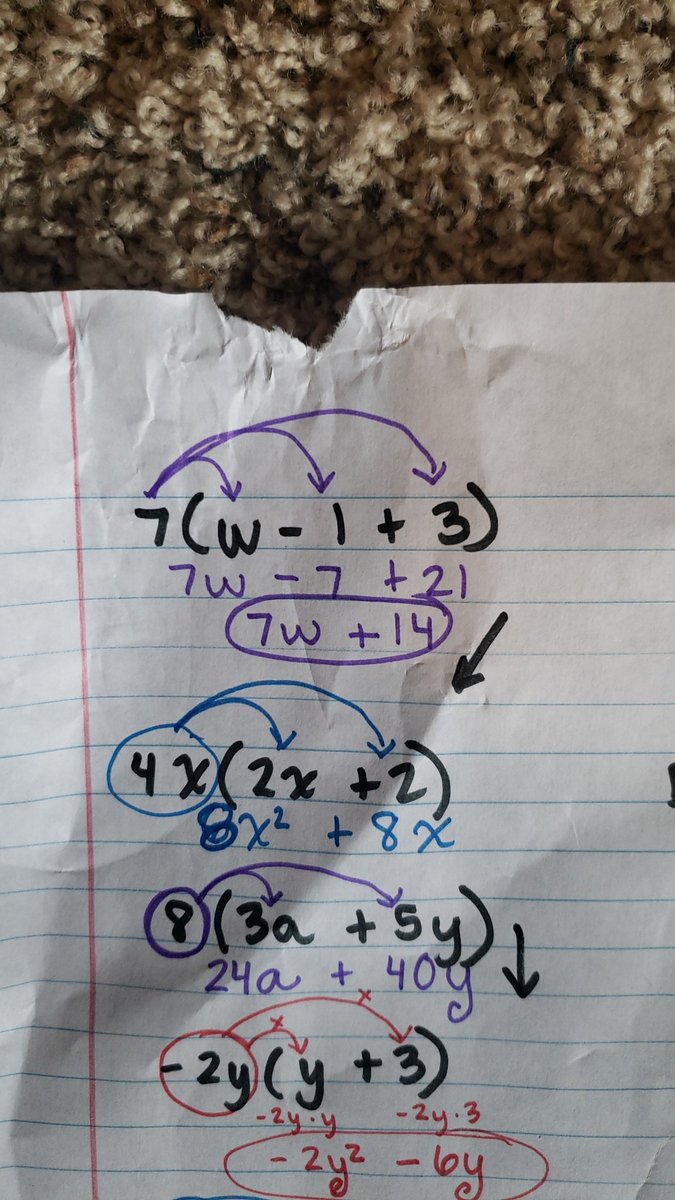 7(w - 1 + 3)
7w - 7 + 21
7w + 14
4x(2x + 2)
8x² + 8x
8(3a + 5y)
24a + 40y
x x
-2y(y + 3)
-2y·y -2y·3
-2y² - 6y